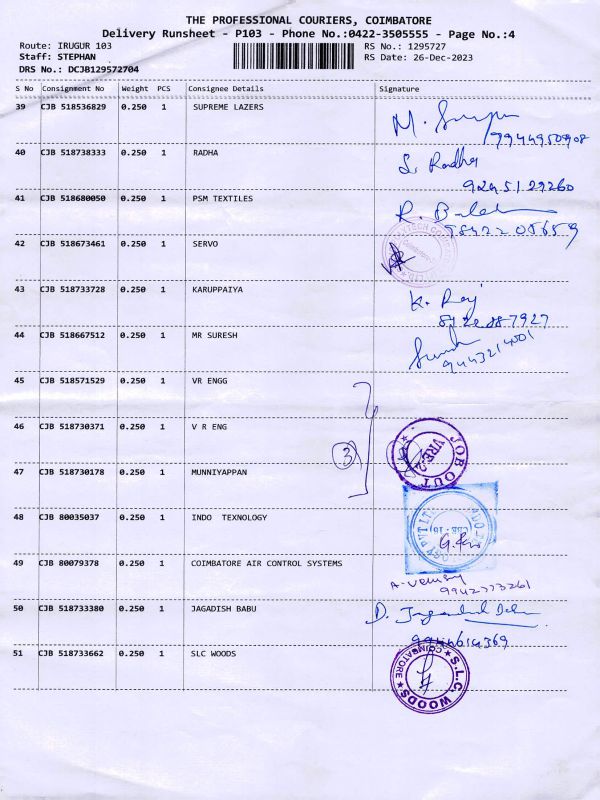 THE PROFESSIONAL COURIERS, COIMBATORE
Delivery Runsheet - P103 - Phone No.:0422-3505555 - Page No.:4
Route: IRUGUR 103 RS No.: 1295727
Staff: STEPHAN RS Date: 26-Dec-2023
DRS No.: DCJB129572704
S No Consignment No Weight PCS Consignee Details Signature
39 CJB 518536829 0.250 1 SUPREME LAZERS
40 CJB 518738333 0.250 1 RADHA S. Radha
41 CJB 518680050 0.250 1 PSM TEXTILES
42 CJB 518673461 0.250 1 SERVO
43 CJB 518733728 0.250 1 KARUPPAIYA K. Raj
44 CJB 518667512 0.250 1 MR SURESH
9443214001
45 CJB 518571529 0.250 1 VR ENGG
46 CJB 518730371 0.250 1 V R ENG 3 JOB OUT VRE-2
47 CJB 518730178 0.250 1 MUNNIYAPPAN
48 CJB 80035037 0.250 1 INDO TEXNOLOGY
49 CJB 80079378 0.250 1 COIMBATORE AIR CONTROL SYSTEMS
9942773261
50 CJB 518733380 0.250 1 JAGADISH BABU
51 CJB 518733662 0.250 1 SLC WOODS S.L.C. WOODS COIMBATORE